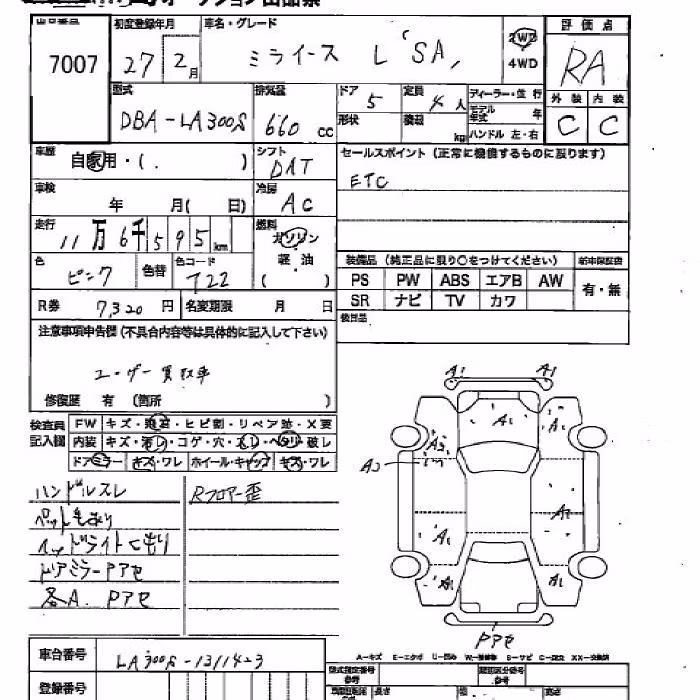 出品番号 初度登録年月 車名・グレード 評価点
7007 27 2月 ミライース L "SA" 2WD 4WD RA
外装 内装
C C
型式 排気量 ドア 定員 ディーラー・並行
DBA-LA300S 660cc 5 4人 モデル年式 年
形状 積載 kg ハンドル 左・右
車歴 シフト セールスポイント (正常に機能するものに限ります)
自家用・( ) DAT ETC
車検 冷房
年 月( 日) AC
走行 燃料
11万6千595km ガソリン 軽油 ( )
色 色替 色コード
ピンク T22
装備品 (純正品に限り○をつけてください) 新車保証書
PS PW ABS エアB AW 有・無
SR ナビ TV カワ
R券 7,320円 名変期限 月 日
後日品
注意事項申告欄 (不具合内容等は具体的に記入して下さい)
ユーザー買取車
修復歴 有 (箇所 )
検査員記入欄
FW キズ・飛石・ヒビ割・リペア跡・X要
内装 キズ・汚レ・コゲ・穴・ヘタリ・破レ
ドアミラー キズ・ワレ ホイール・キャップ キズ・ワレ
ハンドルスレ Rフロアー歪
ヘッドライトくもり
ドアミラーPアセ
各A. Pアセ
A1 A1
A1 A1
A2
A2
A1 A1
A1 A1
Pアセ
車台番号 LA300S-1311423
登録番号
A-キズ E-エクボ U-凹み W-補修跡 S-サビ C-腐食 XX-交換済
型式指定番号 参考 類別区分番号 参考
長さ 幅 高さ